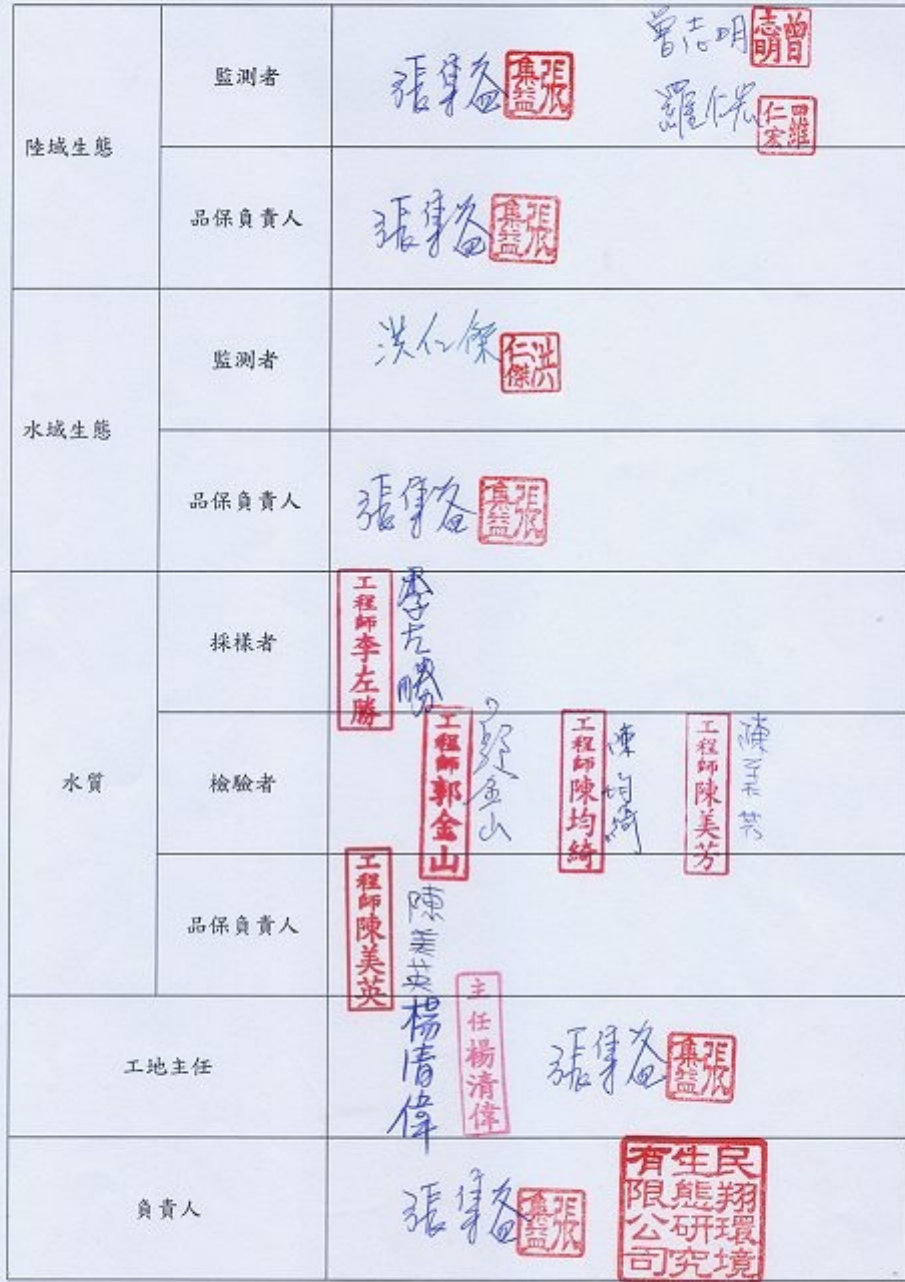 陸域生態
監測者
張集益 張集益
曾志明 曾志明
羅仁宏 羅仁宏
品保負責人
張集益 張集益
水域生態
監測者
洪仁傑 洪仁傑
品保負責人
張集益 張集益
水質
採樣者
工程師李左勝 李左勝
檢驗者
工程師郭金山 郭金山
工程師陳均綺 陳均綺
工程師陳美芳 陳美芳
品保負責人
工程師陳美英 陳美英
工地主任
楊清偉 主任楊清偉
張集益 張集益
負責人
張集益 張集益
民翔環境生態研究有限公司